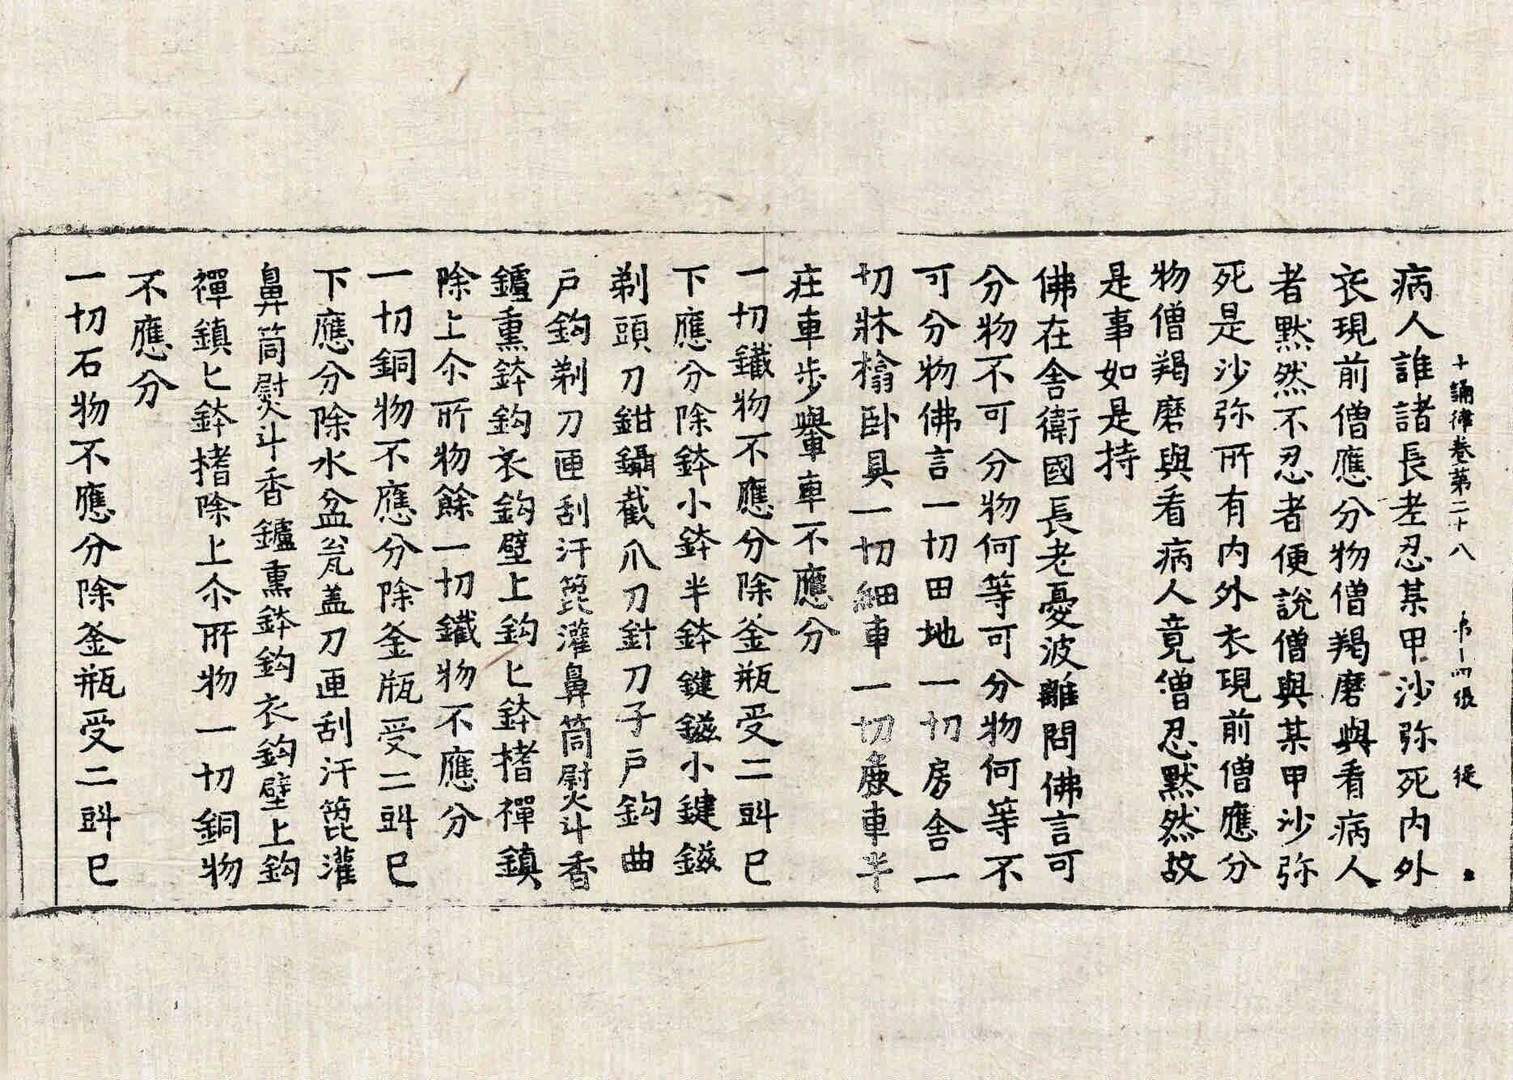 十誦律卷第二十八 第十四張 從
病人誰諸長老忍某甲沙弥死內外
衣現前僧應分物僧羯磨與看病人
者黙然不忍者便說僧與某甲沙弥
死是沙弥所有內外衣現前僧應分
物僧羯磨與看病人竟僧忍黙然故
是事如是持
佛在舍衛國長老憂波離問佛言可
分物不可分物何等可分物何等不
可分物佛言一切田地一切房舍一
切牀榻卧具一切細車一切麁車半
莊車步轝車不應分
一切鐵物不應分除釜瓶受二㪷已
下應分除鉢小鉢半鉢鍵鎡小鍵鎡
剃頭刀鉗鑷截爪刀針刀子戶鈎曲
戶鈎剃刀匣刮汗篦灌鼻筒熨斗香
鑪熏鉢鈎衣鈎壁上鈎匕鉢榰禪鎮
除上尒所物餘一切鐵物不應分
一切銅物不應分除釜瓶受二㪷已
下應分除水盆瓮盖刀匣刮汗篦灌
鼻筒熨斗香鑪熏鉢鈎衣鈎壁上鈎
禪鎮匕鉢榰除上尒所物一切銅物
不應分
一切石物不應分除釜瓶受二㪷已